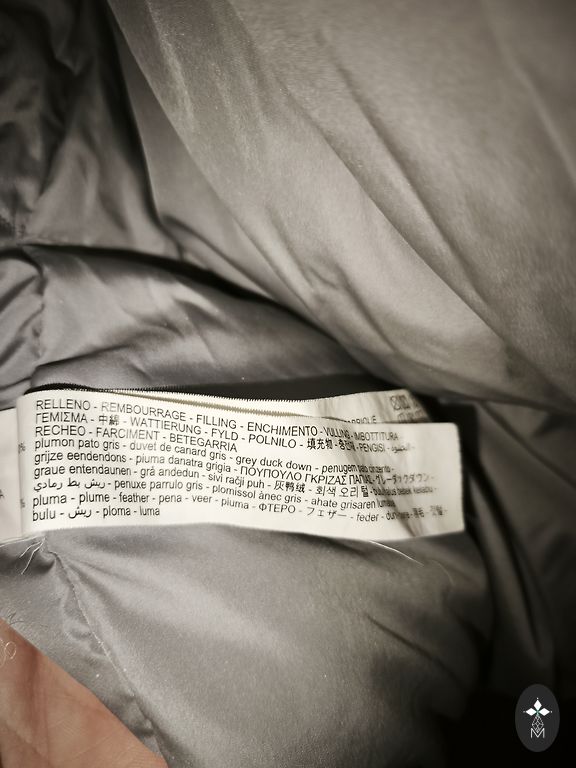 RELLENO - REMBOURRAGE - FILLING - ENCHIMENTO - VULLING - IMBOTTITURA -
ΓΕΜΙΣΜΑ - 中綿 - WATTIERUNG - FYLD - POLNILO - 填充物 - PENGISI -
RECHEO - FARCIMENT - BETEGARRIA
plumon pato gris - duvet de canard gris - grey duck down - penugem pato cinzento -
grijze eendendons - piuma danatra grigia - ΠΟΥΠΟΥΛΟ ΓΚΡΙΖΑΣ ΠΑΠΙΑΣ - グレーダックダウン -
graue entendaunen - grå andedun - sivi račji puh - 灰鸭绒 - 회색 오리 털 - bulu halus bebek kelabu -
ريش بط رمادي - penuxe parrulo gris - plomissol ànec gris - ahate grisaren lumatxa
pluma - plume - feather - pena - veer - piuma - ΦΤΕΡΟ - フェザー - feder - dun -
bulu - ريش - ploma - luma
M